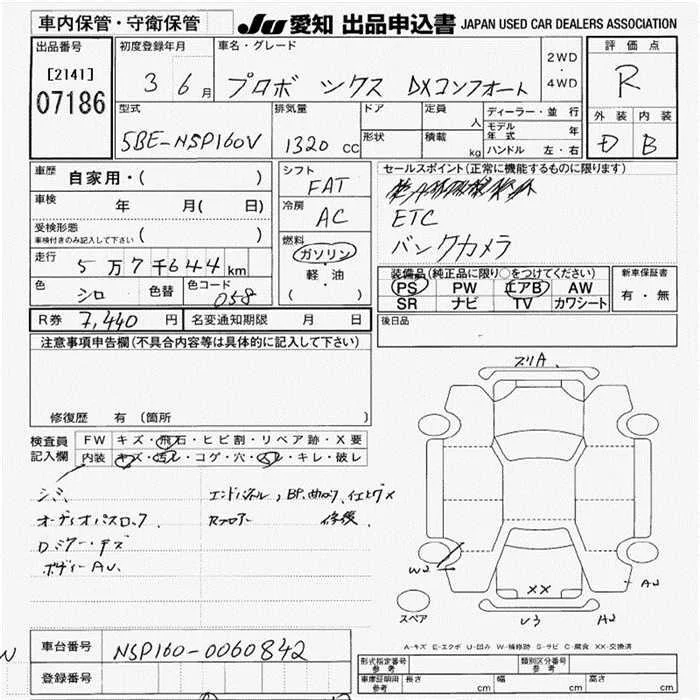 車内保管・守衛保管
JU 愛知 出品申込書 JAPAN USED CAR DEALERS ASSOCIATION
出品番号
[2141]
07186
初度登録年月
3 6月
車名・グレード
プロボックス DXコンフォート
2WD
・
4WD
評価点
R
外装 内装
D B
型式
5BE-NSP160V
排気量
1320 CC
ドア
形状
定員 人
積載 kg
ディーラー・並行
モデル年式 年
ハンドル 左・右
車歴 自家用・( )
車検 年 月( 日)
受検形態
車検付きのみ記入して下さい ( )
走行 5万7千644km
色 シロ 色替 色コード 058
シフト
FAT
冷房
AC
燃料
ガソリン
・
軽・油
( )
セールスポイント(正常に機能するものに限ります)
ETC
バックカメラ
装備品(純正品に限り○をつけてください)
PS PW エアB AW
SR ナビ TV カワシート
新車保証書
有・無
R券 7,440 円 名変通知期限 月 日
後日品
注意事項申告欄(不具合内容等は具体的に記入して下さい)
修復歴 有(箇所 )
検査員
記入欄
FW キズ・飛石・ヒビ割・リペア跡・X要
内装 キズ・汚レ・コゲ・穴・スレ・キレ・破レ
シミ
エンドパネル,
修後
ボディーAU.
ズリA
W2
XX
U3
A2
AU
スペア
A-キズ E-エクボ U-凹み W-補修跡 S-サビ C-腐食 XX-交換済
車台番号 NSP160-0060842
登録番号
型式指定番号
参考
類別区分番号
参考
車庫証明用
参考
長さ cm 幅 cm 高さ cm